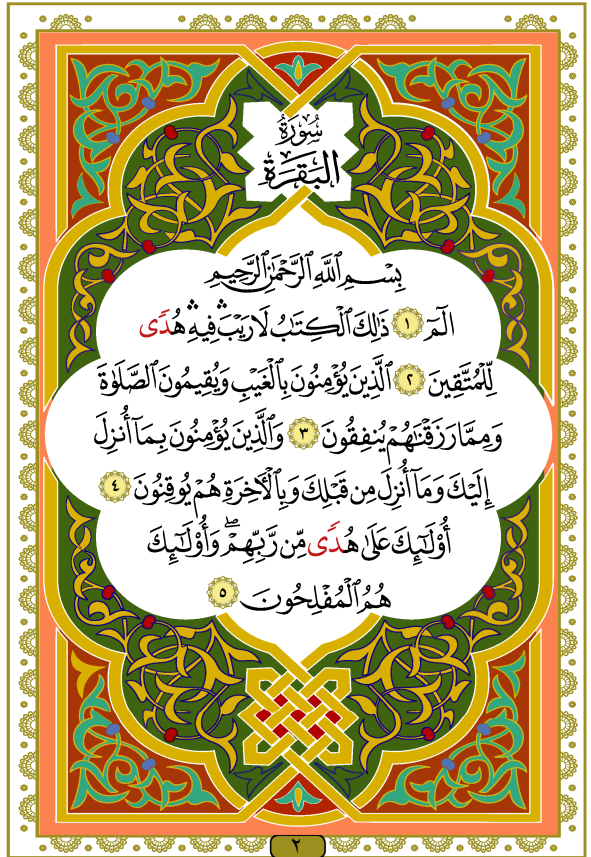 سُورَةُ
البَقَرَةِ
بِسْمِ ٱللَّهِ ٱلرَّحْمَٰنِ ٱلرَّحِيمِ
الٓمٓ ١ ذَٰلِكَ ٱلْكِتَٰبُ لَا رَيْبَ ۛ فِيهِ ۛ هُدًى
لِّلْمُتَّقِينَ ٢ ٱلَّذِينَ يُؤْمِنُونَ بِٱلْغَيْبِ وَيُقِيمُونَ ٱلصَّلَوٰةَ
وَمِمَّا رَزَقْنَٰهُمْ يُنفِقُونَ ٣ وَٱلَّذِينَ يُؤْمِنُونَ بِمَآ أُنزِلَ
إِلَيْكَ وَمَآ أُنزِلَ مِن قَبْلِكَ وَبِٱلْءَاخِرَةِ هُمْ يُوقِنُونَ ٤
أُو۟لَٰٓئِكَ عَلَىٰ هُدًى مِّن رَّبِّهِمْ ۖ وَأُو۟لَٰٓئِكَ
هُمُ ٱلْمُفْلِحُونَ ٥
٢